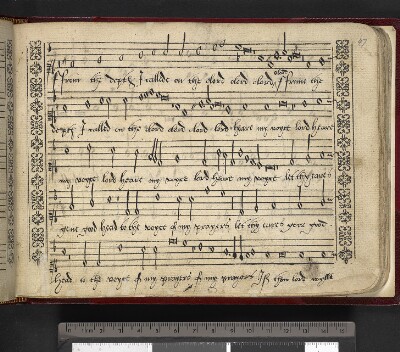 From the depth I called on the Lord Lord Lord, O Lord From the
depth I called on the Lord Lord Lord Lord heare my voyce Lord heare
my voyce Lord heare my voyce Lord heare my voyce let thy eares
geve good head to the voyce of my prayers let thy eares geve good
head to the voyce of my prayers of my prayers If thou Lord